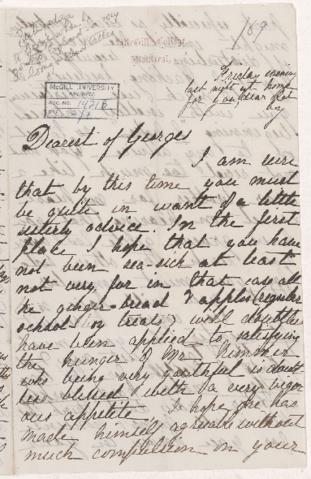 189
McGILL UNIVERSITY
ARCHIVES
ACC. NO.
REF.
Friday evening
last night at home
for
Dearest of Georges
I am sure
that by this time you must
be quite in want of a little
sisterly advice. In the first
place I hope that you have
not been sea-sick at least
not very, for in that case all
the ginger-bread & apples (regular
school-boy treats) will doubtless
have been applied to satisfying
the hunger of Mr.
who being very youthful is doubt
less blessed with a very vigor
ous appetite. I hope he has
made himself agreeable without
much compulsion on your